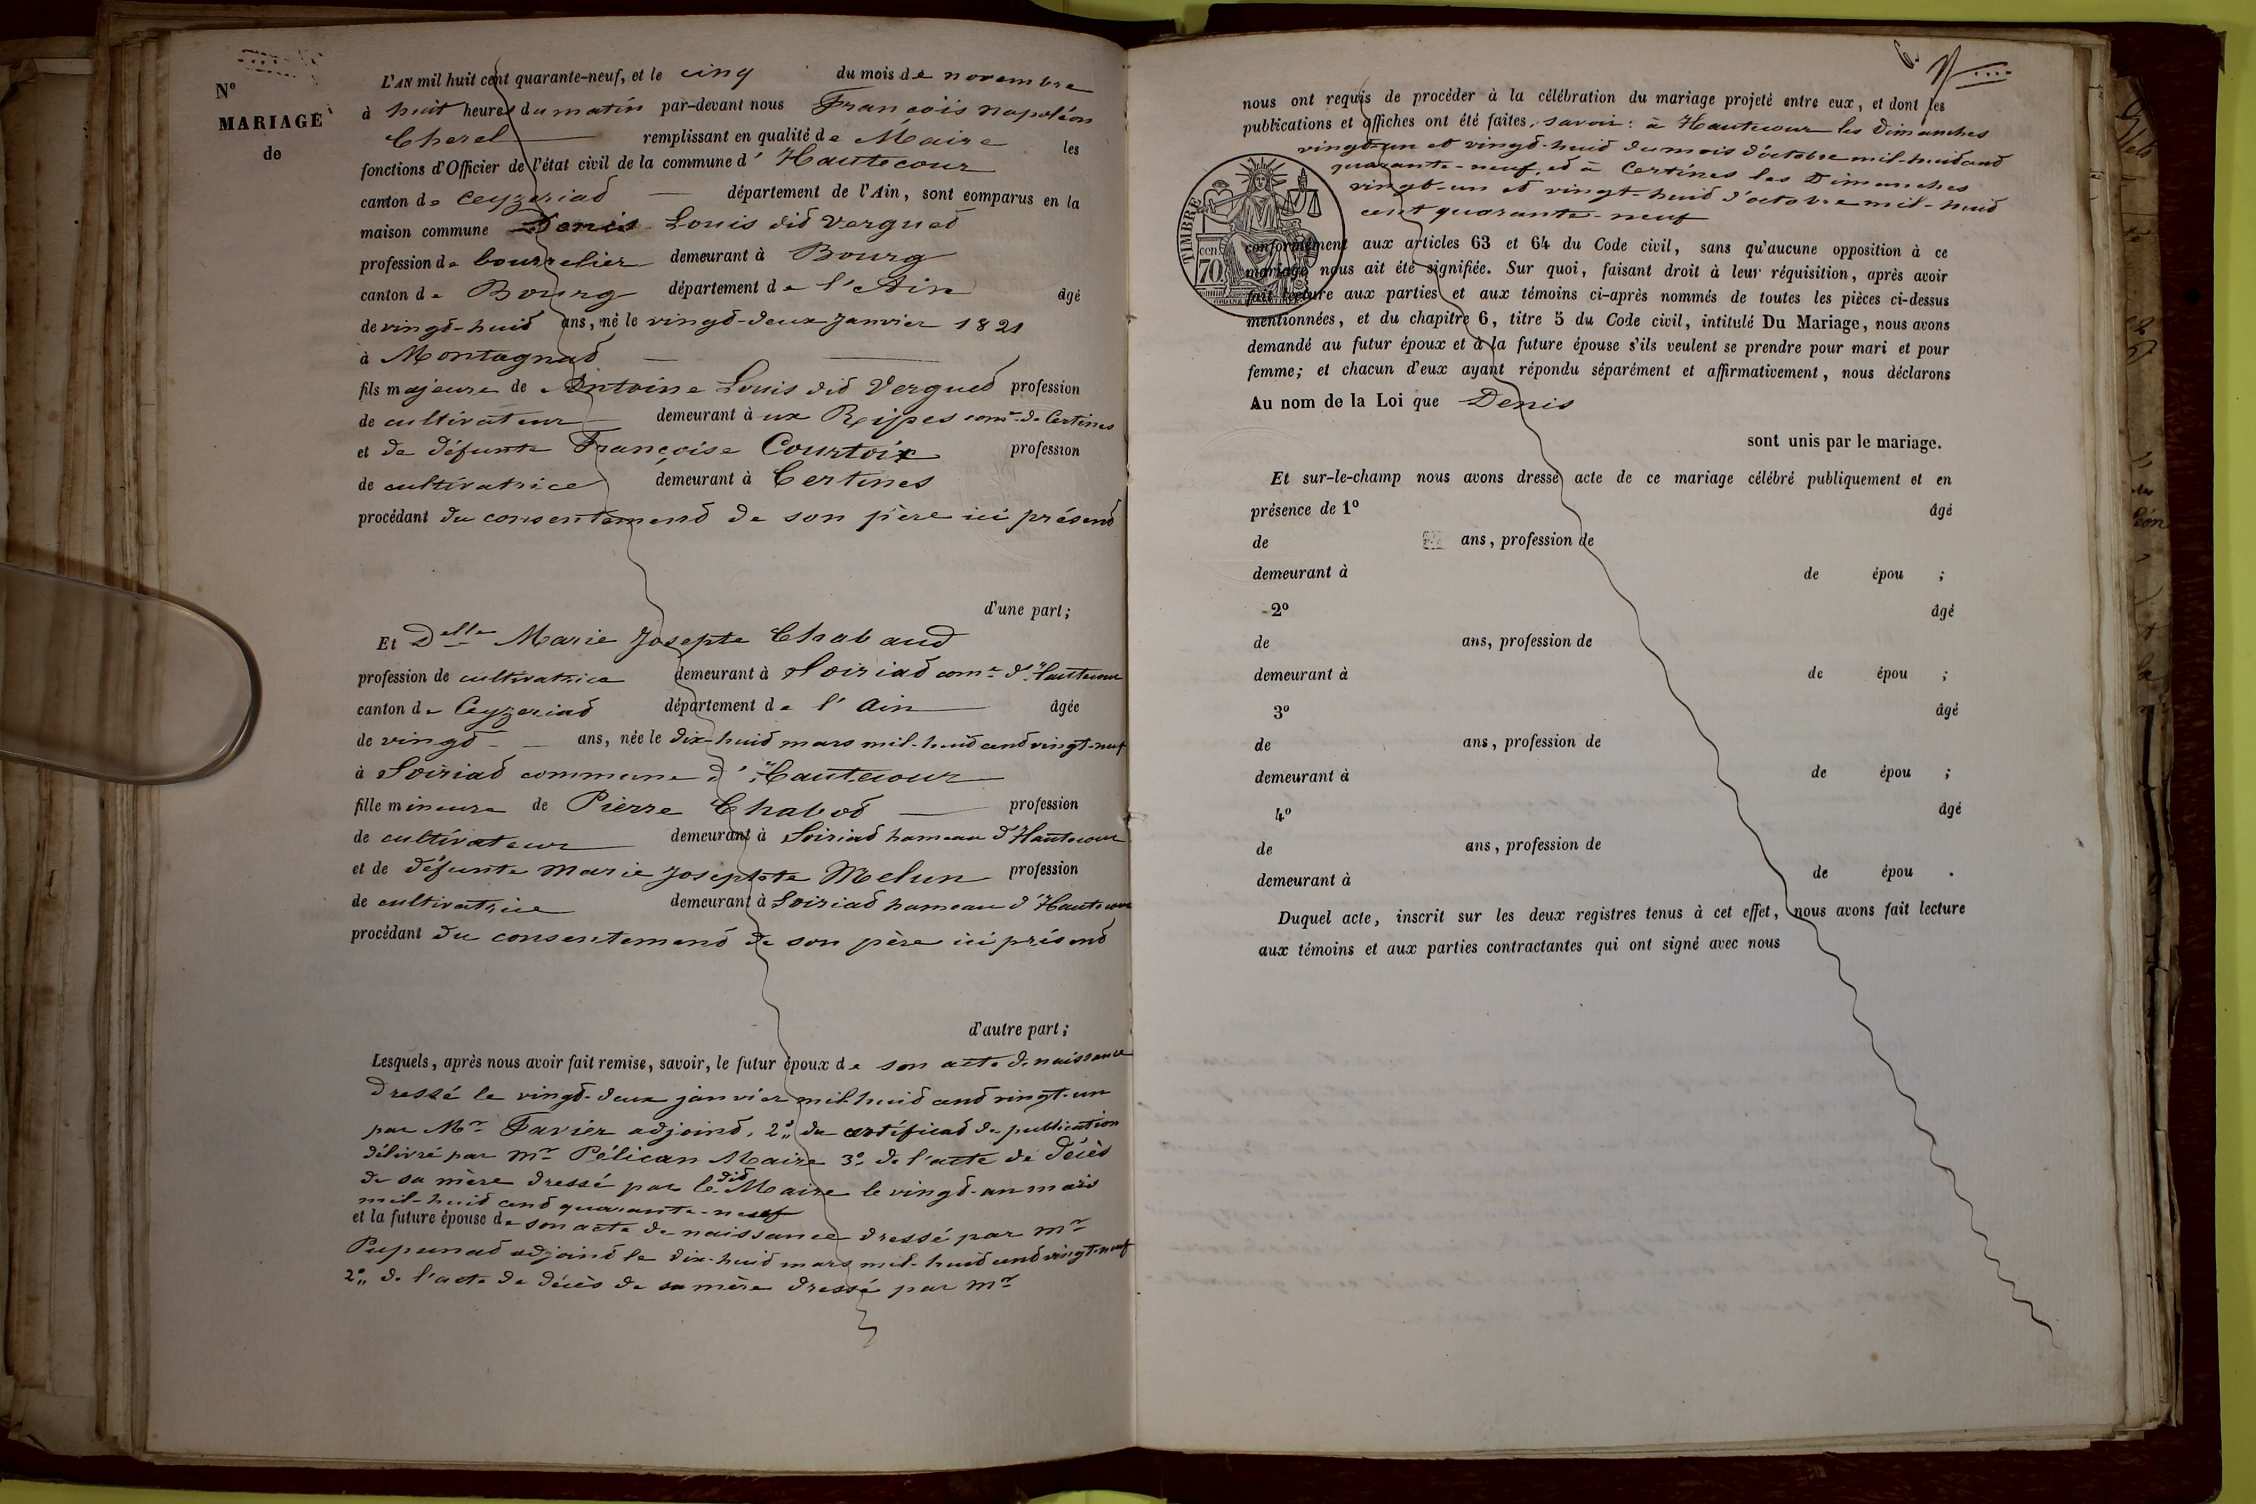 N°
MARIAGE
de
L'AN mil huit cent quarante-neuf, et le cinq du mois de novembre
à huit heures du matin par-devant nous François napoléon
Cherel remplissant en qualité de Maire les
fonctions d'Officier de l'état civil de la commune d' Hautecour
canton de Ceyzeriat département de l'Ain, sont comparus en la
maison commune Denis Louis dit Verguet
profession de bourrelier demeurant à Bourg
canton de Bourg département de l'Ain âgé
de vingt-huit ans, né le vingt-deux Janvier 1821
à Montagnat
fils majeure de Antoine Louis dit Verguet profession
de cultivateur demeurant à ux Rippes com.ne de Certines
et de défunte Françoise Courtoix profession
de cultivatrice demeurant à Certines
procédant du consentement de son père ici présent
d'une part;
Et Delle Marie Josepte Chabaud
profession de cultivatrice demeurant à Soiriat com.ne d'hautecour
canton de Ceyzeriat département de l'Ain âgée
de vingt ans, née le dix-huit mars mil-huit cent vingt-neuf
à Soiriat commune d'Hautecour
fille mineure de Pierre Chabod profession
de cultivateur demeurant à Soiriat hameau d'Hautecour
et de défunte Marie Josephte Melun profession
de cultivatrice demeurant à Soiriat hameau d'Hautecour
procédant du consentement de son père ici présent
d'autre part;
Lesquels, après nous avoir fait remise, savoir, le futur époux de son acte de naissance
dressé le vingt-deux janvier mil-huit cent vingt-un
par Mr Favier adjoint, 2° du certificat de publication
délivré par Mr Pélican Maire 3° de l'acte de décès
de sa mère dressé par le dit Maire le vingt-un mars
mil-huit cent quarante-neuf
et la future épouse de son acte de naissance dressé par Mr
Pupunat adjoint le dix-huit mars mil-huit cent vingt-neuf
2° de l'acte de décès de sa mère dressé par Mr
nous ont requis de procéder à la célébration du mariage projeté entre eux, et dont les
publications et affiches ont été faites, savoir : à Hautecour les Dimanches
vingt-un et vingt-huit du mois d'octobre mil-huit cent
quarante-neuf, et à Certines les Dimanches
vingt-un et vingt-huit d'octobre mil-huit
cent quarante-neuf
TIMBRE
70 cen
conformément aux articles 63 et 64 du Code civil, sans qu'aucune opposition à ce
mariage nous ait été signifiée. Sur quoi, faisant droit à leur réquisition, après avoir
fait lecture aux parties et aux témoins ci-après nommés de toutes les pièces ci-dessus
mentionnées, et du chapitre 6, titre 5 du Code civil, intitulé Du Mariage, nous avons
demandé au futur époux et à la future épouse s'ils veulent se prendre pour mari et pour
femme; et chacun d'eux ayant répondu séparément et affirmativement, nous déclarons
Au nom de la Loi que Denis
sont unis par le mariage.
Et sur-le-champ nous avons dressé acte de ce mariage célébré publiquement et en
présence de 1° âgé
de ans, profession de
demeurant à de épou ;
2° âgé
de ans, profession de
demeurant à de épou ;
3° âgé
de ans, profession de
demeurant à de épou ;
4° âgé
de ans, profession de
demeurant à de épou .
Duquel acte, inscrit sur les deux registres tenus à cet effet, nous avons fait lecture
aux témoins et aux parties contractantes qui ont signé avec nous